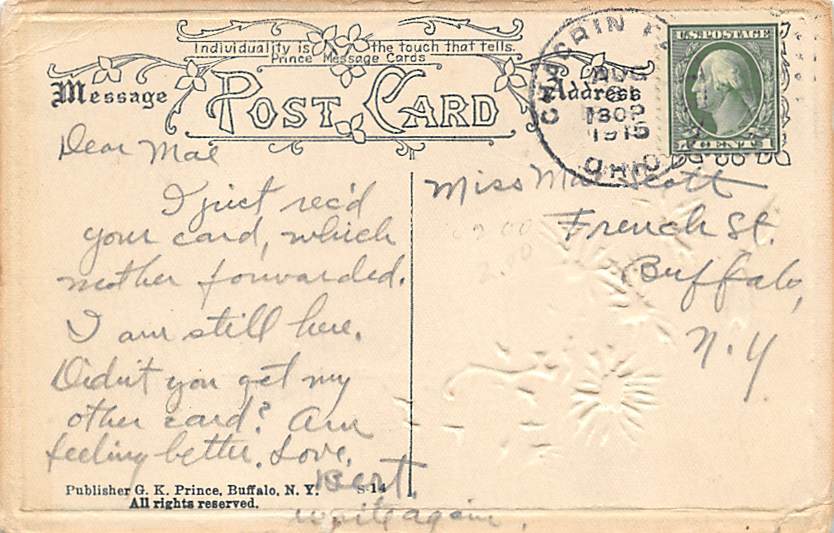 Individuality is the touch that tells.
Prince Message Cards
Message POST CARD Address
CHAGRIN
AUG
1915
OHIO
U.S. POSTAGE
1 CENT 1
Dear Mae
I just rec'd
your card, which
mother forwarded.
I am still here.
Didn't you get my
other card? Am
feeling better. Love,
Bert.
write again.
Miss Mae Scott
French St.
Buffalo,
N.Y.
2.00
Publisher G. K. Prince, Buffalo, N. Y. S-14
All rights reserved.